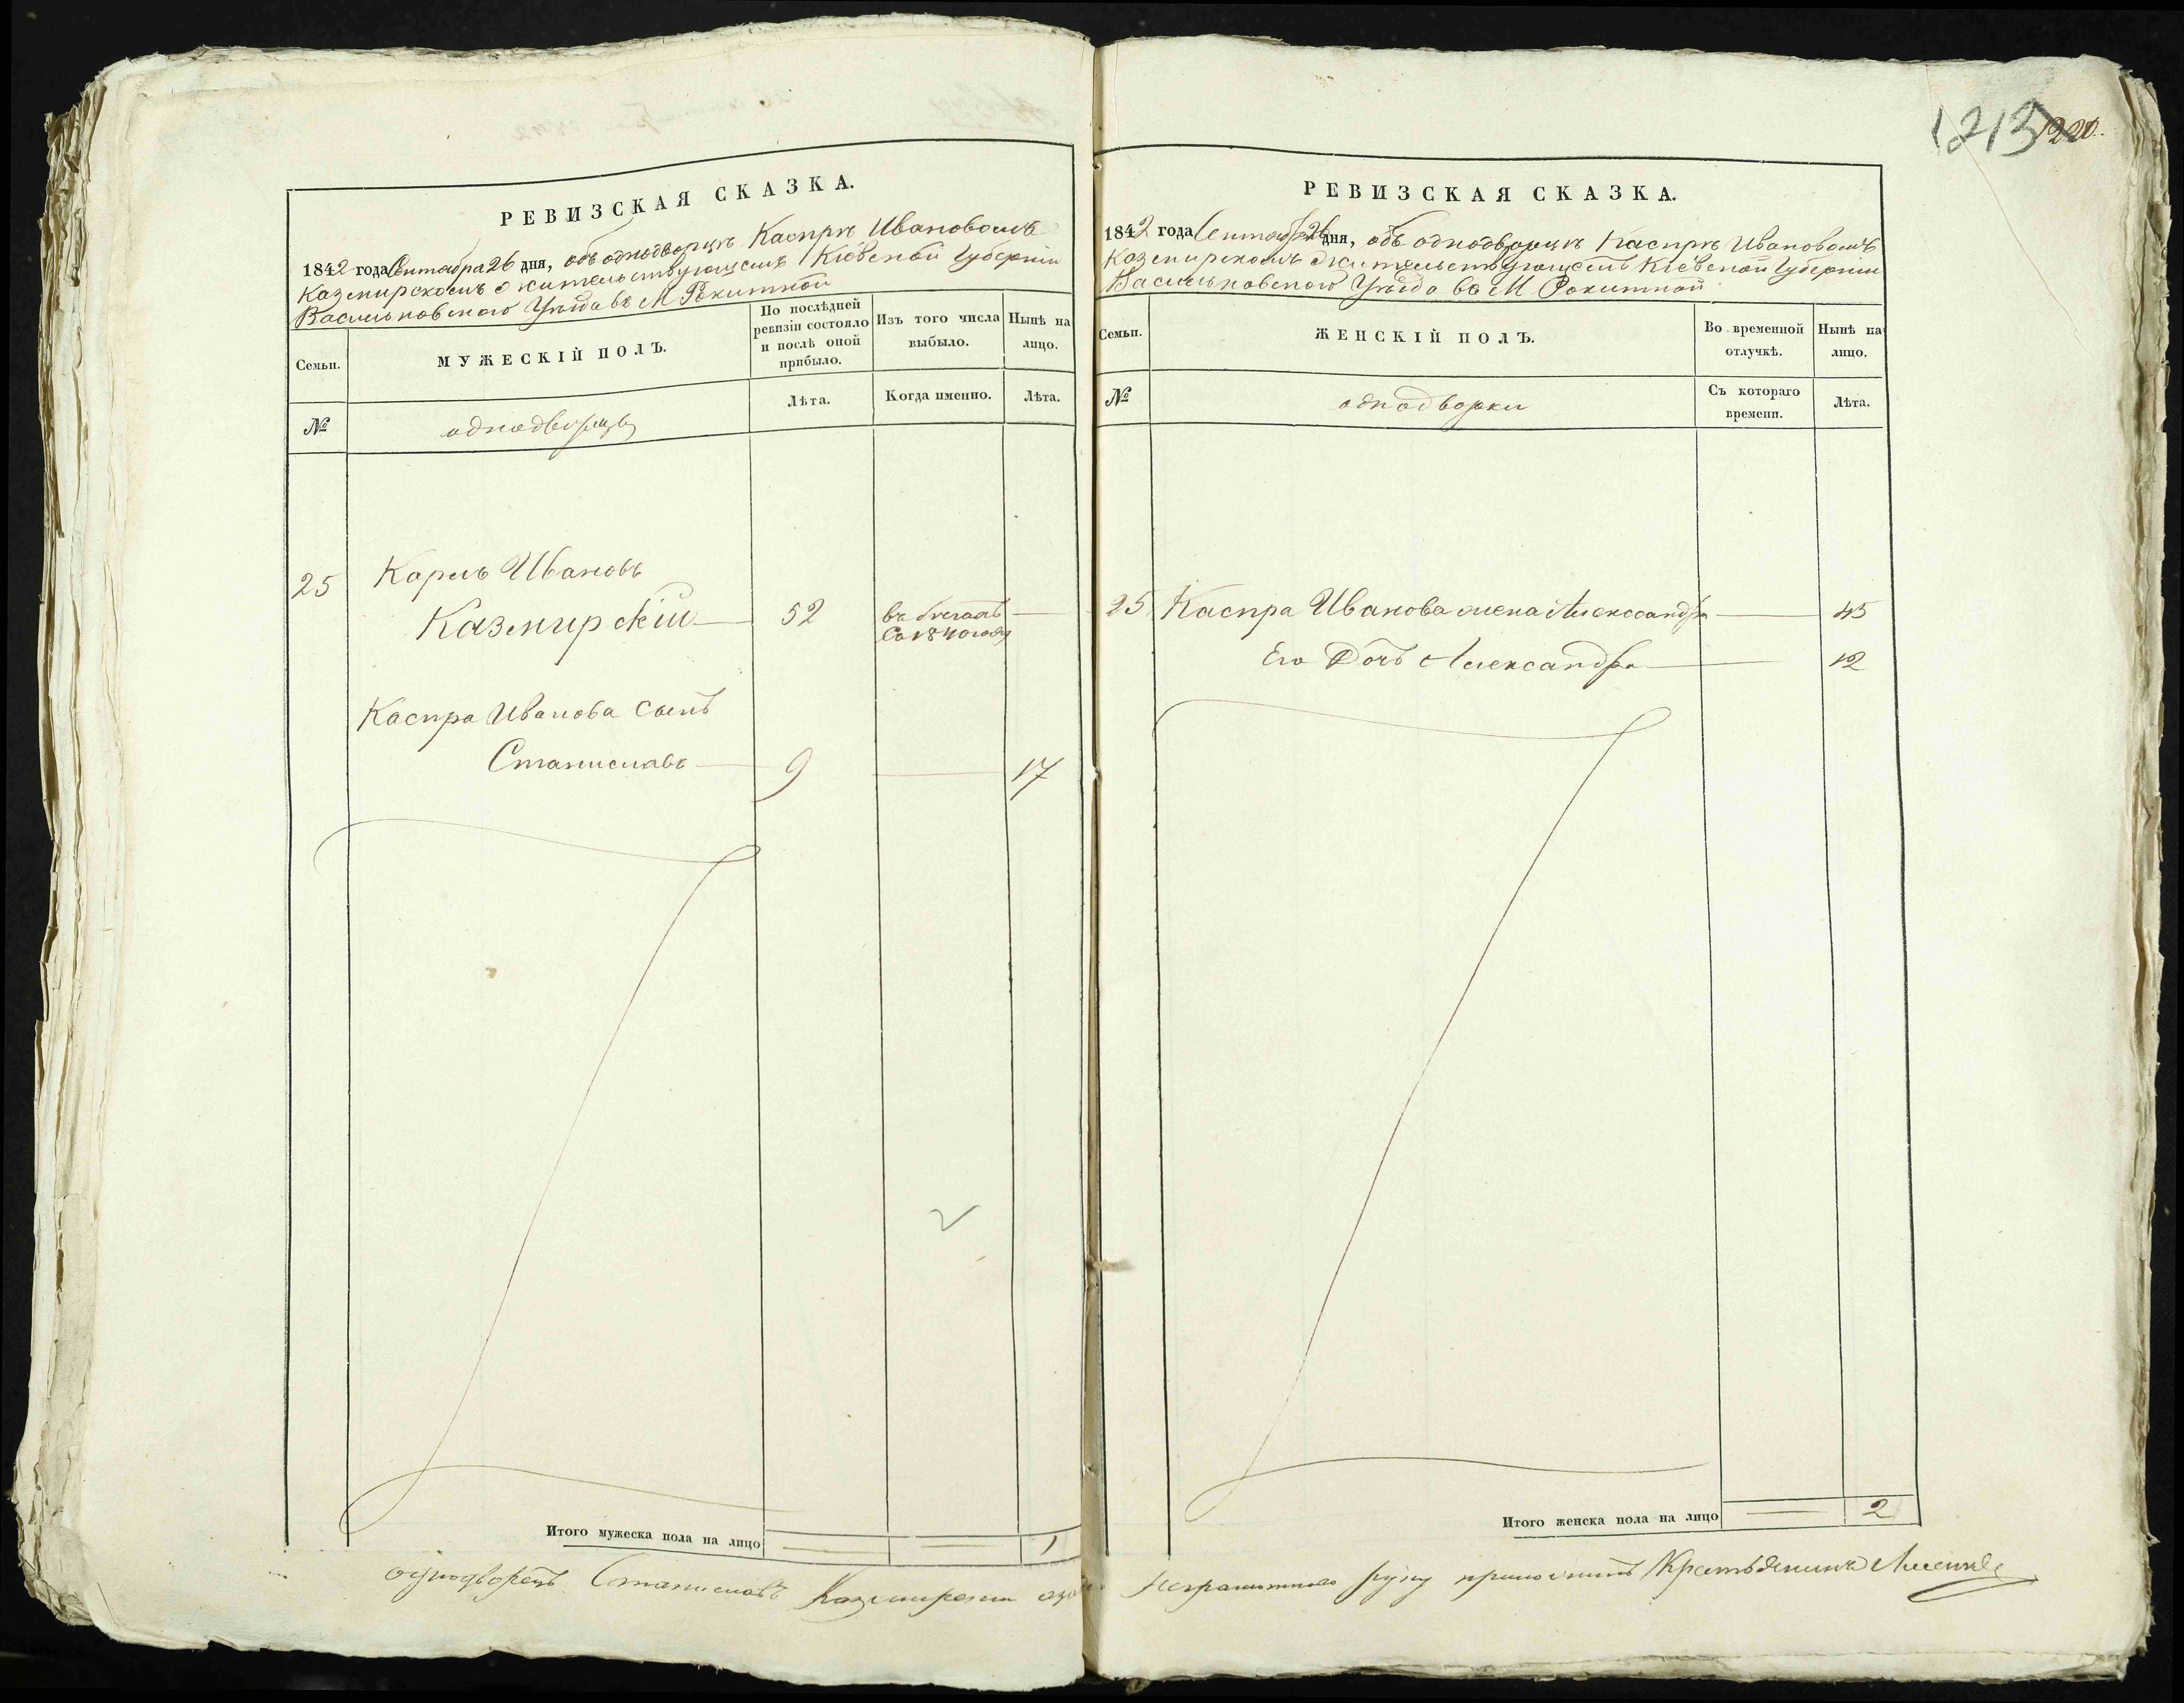 РЕВИЗСКАЯ СКАЗКА.
1842 года Сентября 26 дня, объ однодворцѣ Каспрѣ Ивановомъ
Казмирскомъ жительствующемъ Кіевской Губерніи
Васильковского Уѣзда въ М Рокитной
Семьи.
МУЖЕСКІЙ ПОЛЪ.
По послѣдней
ревизіи состояло
и послѣ оной
прибыло.
Изъ того числа
выбыло.
Нынѣ на
лицо.
№
однодворцы
Лѣта.
Когда именно.
Лѣта.
25 Карлъ Ивановъ
Казмирскій 52 въ бегахъ
Со 1840 года
Каспра Иванова Сынъ
Станиславъ 9 17
Итого мужеска пола на лицо 1
однодворецъ Станиславъ Казмирскій а за
1213 1220.
РЕВИЗСКАЯ СКАЗКА.
1842 года Сентября 26 дня, объ однодворцѣ Каспрѣ Ивановомъ
Казмирскомъ жительствующемъ Кіевской Губерніи
Васильковского Уѣзда въ М Рокитной
Семьи.
ЖЕНСКІЙ ПОЛЪ.
Во временной
отлучкѣ.
Нынѣ на
лицо.
№
однодворки
Съ котораго
времени.
Лѣта.
25 Каспра Иванова жена Александра 45
Его Дочь Александра 12
Итого женска пола на лицо 2
неграмотного руку приложилъ